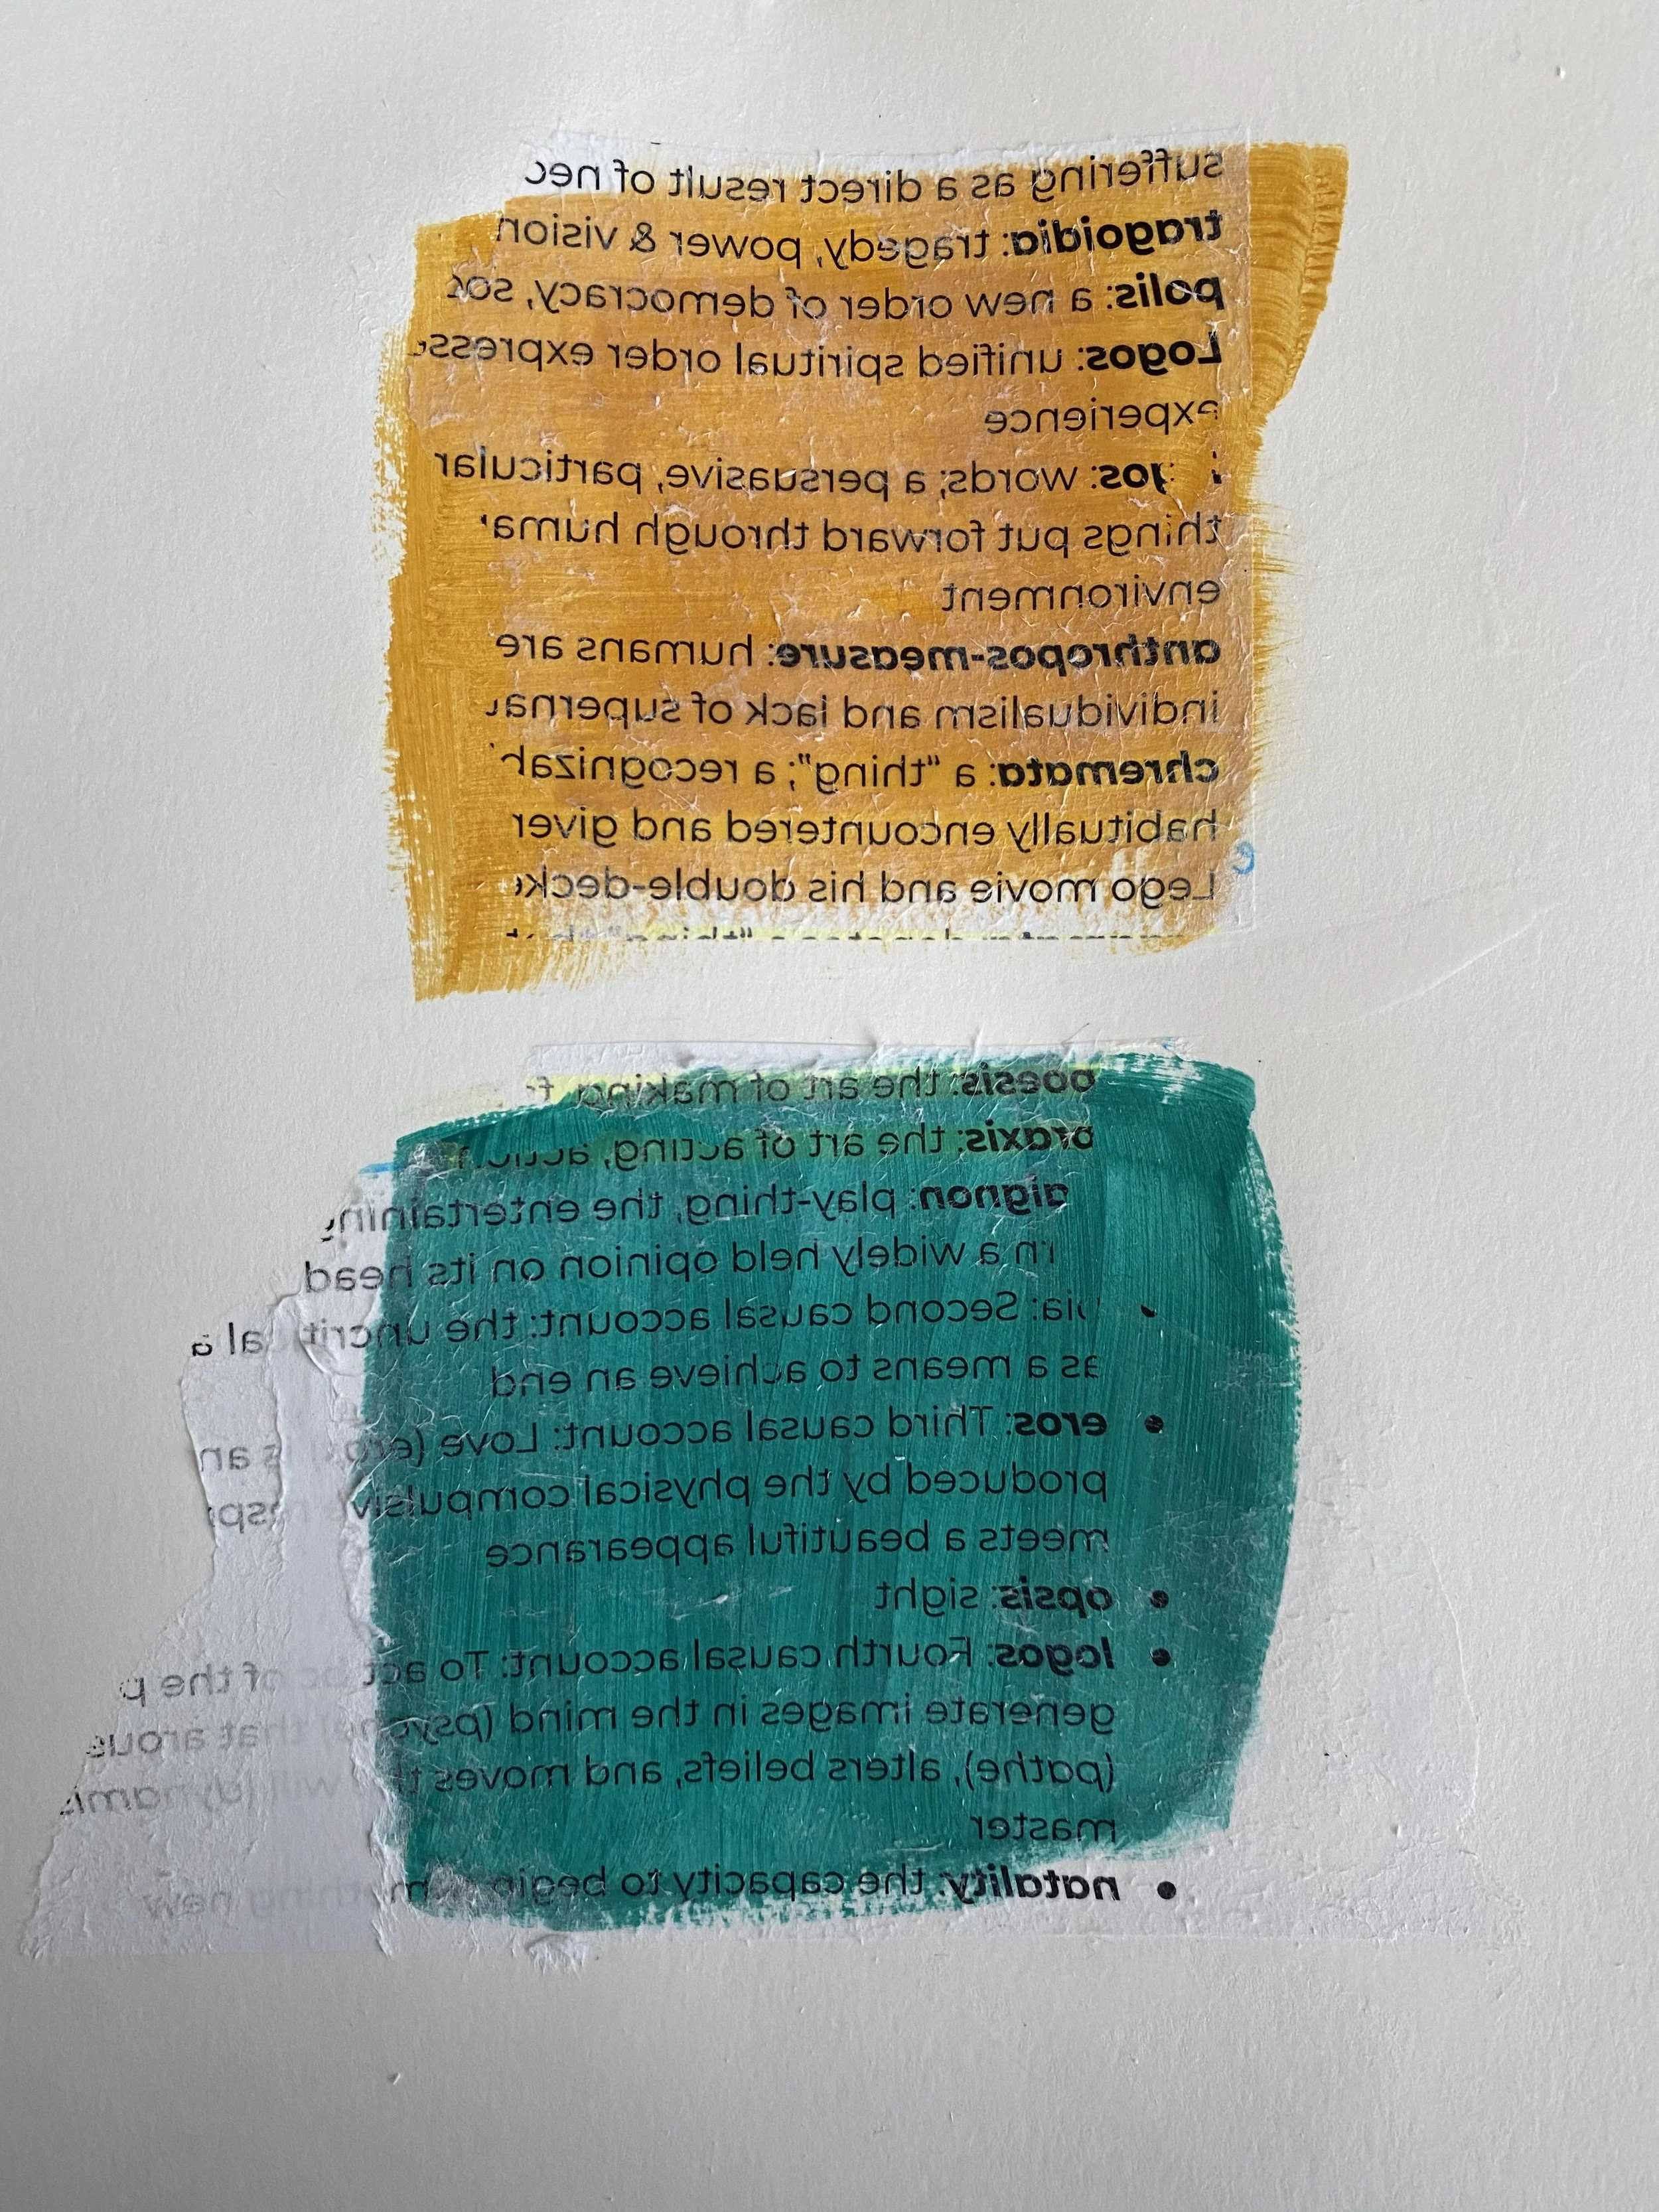 suffering as a direct result of nec
tragoidia: tragedy, power & vision
polis: a new order of democracy, soc
Logos: unified spiritual order express
experience
gos: words; a persuasive, particular
things put forward through huma
environment
anthropos-measure: humans are
individualism and lack of superna
chremata: a "thing"; a recognizab
habitually encountered and giver
Lego movie and his double-decke
poesis: the art of making, f
praxis: the art of acting, action
aignon: play-thing, the entertaining
rn a widely held opinion on its head
• bia: Second causal account: the uncritical a
as a means to achieve an end
• eros: Third causal account: Love (eros) is an
produced by the physical compulsive resp
meets a beautiful appearance
• opsis: sight
• logos: Fourth causal account: To act of the p
generate images in the mind (psyche) that arous
(pathe), alters beliefs, and moves the will (dynami
master
• natality: the capacity to begin something new